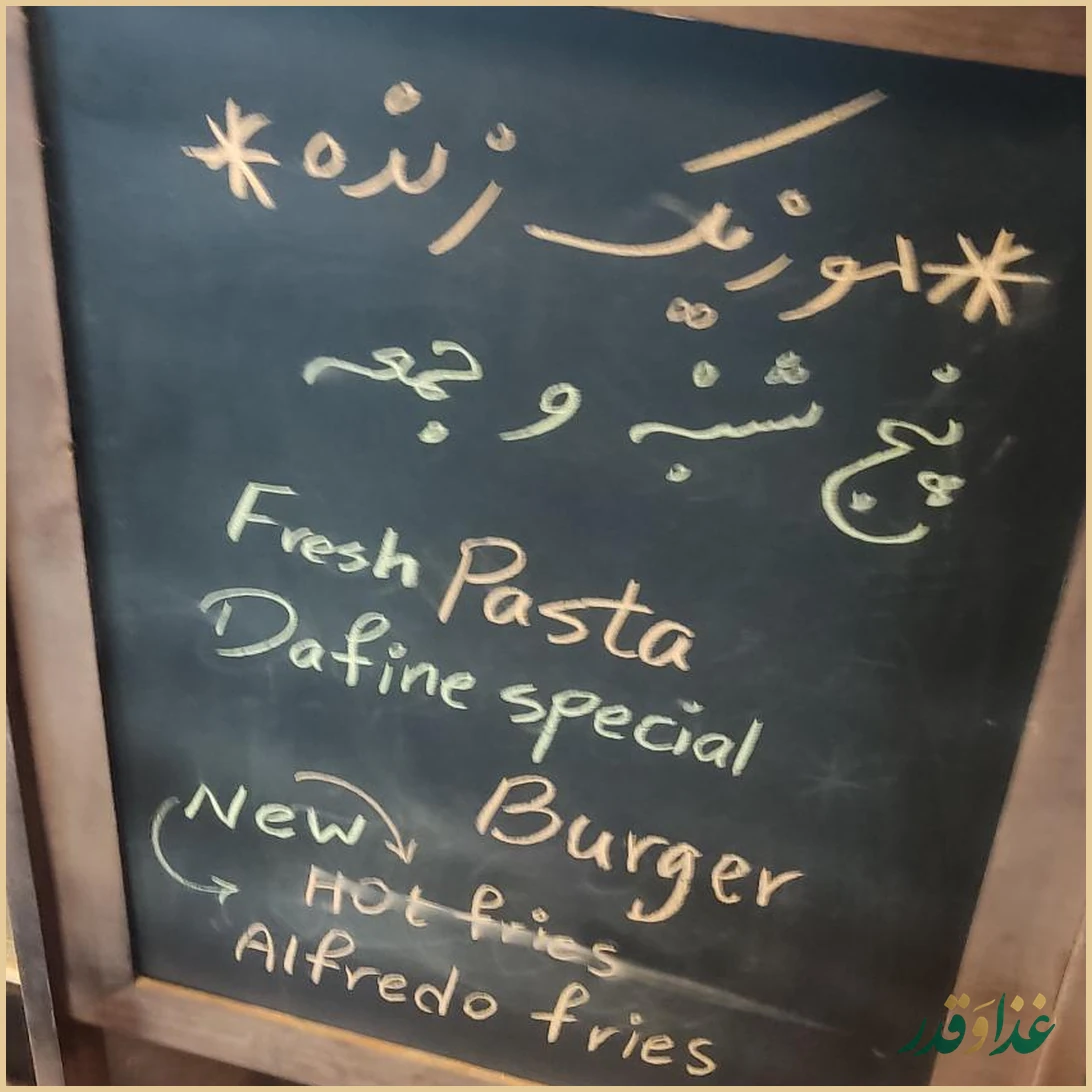 *موزیک زنده*
پنج شنبه و جمعه
Fresh Pasta
Dafine special
Burger
New
Hot fries
Alfredo fries
غذا وَ قدر